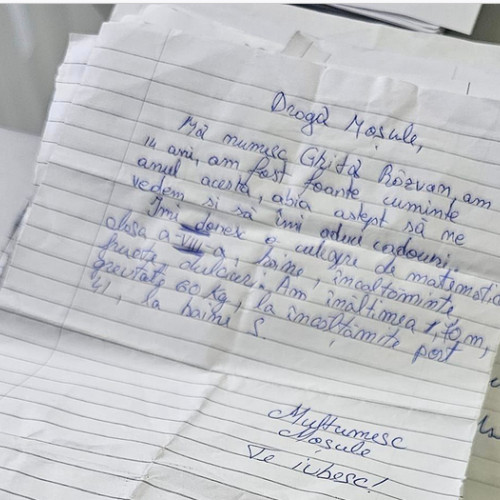 Dragă Moșule,
Mă numesc Ghiță Răzvan, am
14 ani, am fost foarte cuminte
anul acesta, abia aștept să ne
vedem și să îmi aduci cadouri.
Îmi doresc o culegre de matemati
clasa a-VIII-a, haine, încălțăminte,
fructe, dulciuri. Am înălțimea 1,70 m,
greutate 60 Kg, la încălțăminte port
41, la haine S.
Mulțumesc
Moșule
Te iubesc!